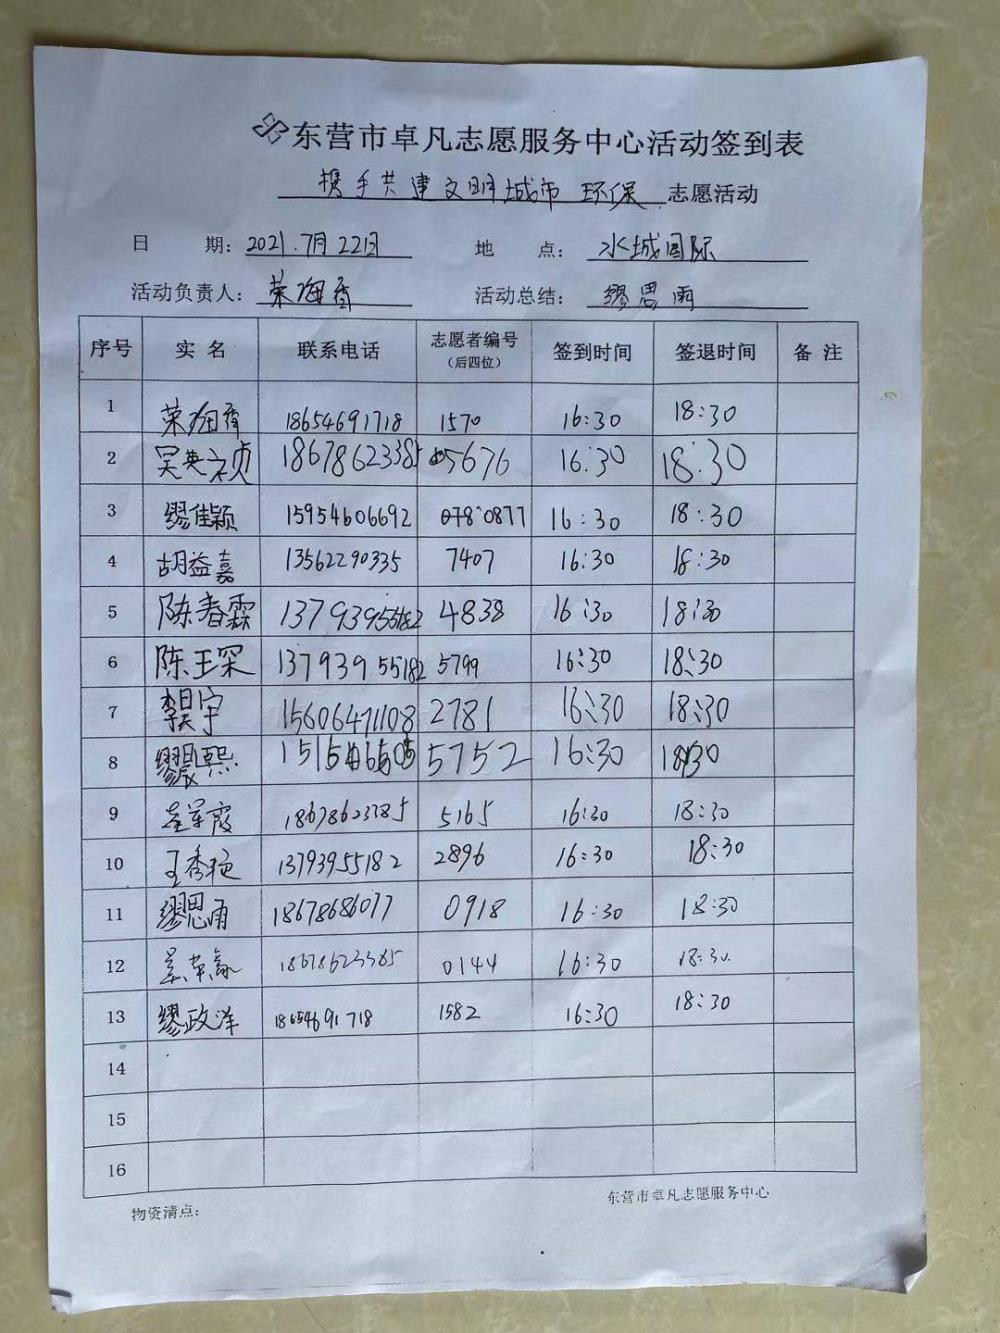 东营市卓凡志愿服务中心活动签到表
携手共建文明城市 环保 志愿活动
日 期: 2021.7月22日 地 点: 水城国际
活动负责人: 荣海香 活动总结: 缪思雨
序号 实 名 联系电话 志愿者编号 (后四位) 签到时间 签退时间 备 注
1 荣海香 18654691718 1570 16:30 18:30
2 吴英祯 18678623385 5676 16:30 18:30
3 缪佳颖 15954606692 0877 16:30 18:30
4 胡益嘉 13562290335 7407 16:30 18:30
5 陈春霖 13793955182 4838 16:30 18:30
6 陈玉琛 13793955182 5799 16:30 18:30
7 李昊宇 15606471108 2781 16:30 18:30
8 5752 16:30 18:30
9 18678623385 5165 16:30 18:30
10 王秀艳 13793955182 2896 16:30 18:30
11 缪思雨 18678686077 0918 16:30 18:30
12 18678623385 0144 16:30 18:30
13 缪政洋 18654691718 1582 16:30 18:30
14
15
16
物资清点:
东营市卓凡志愿服务中心